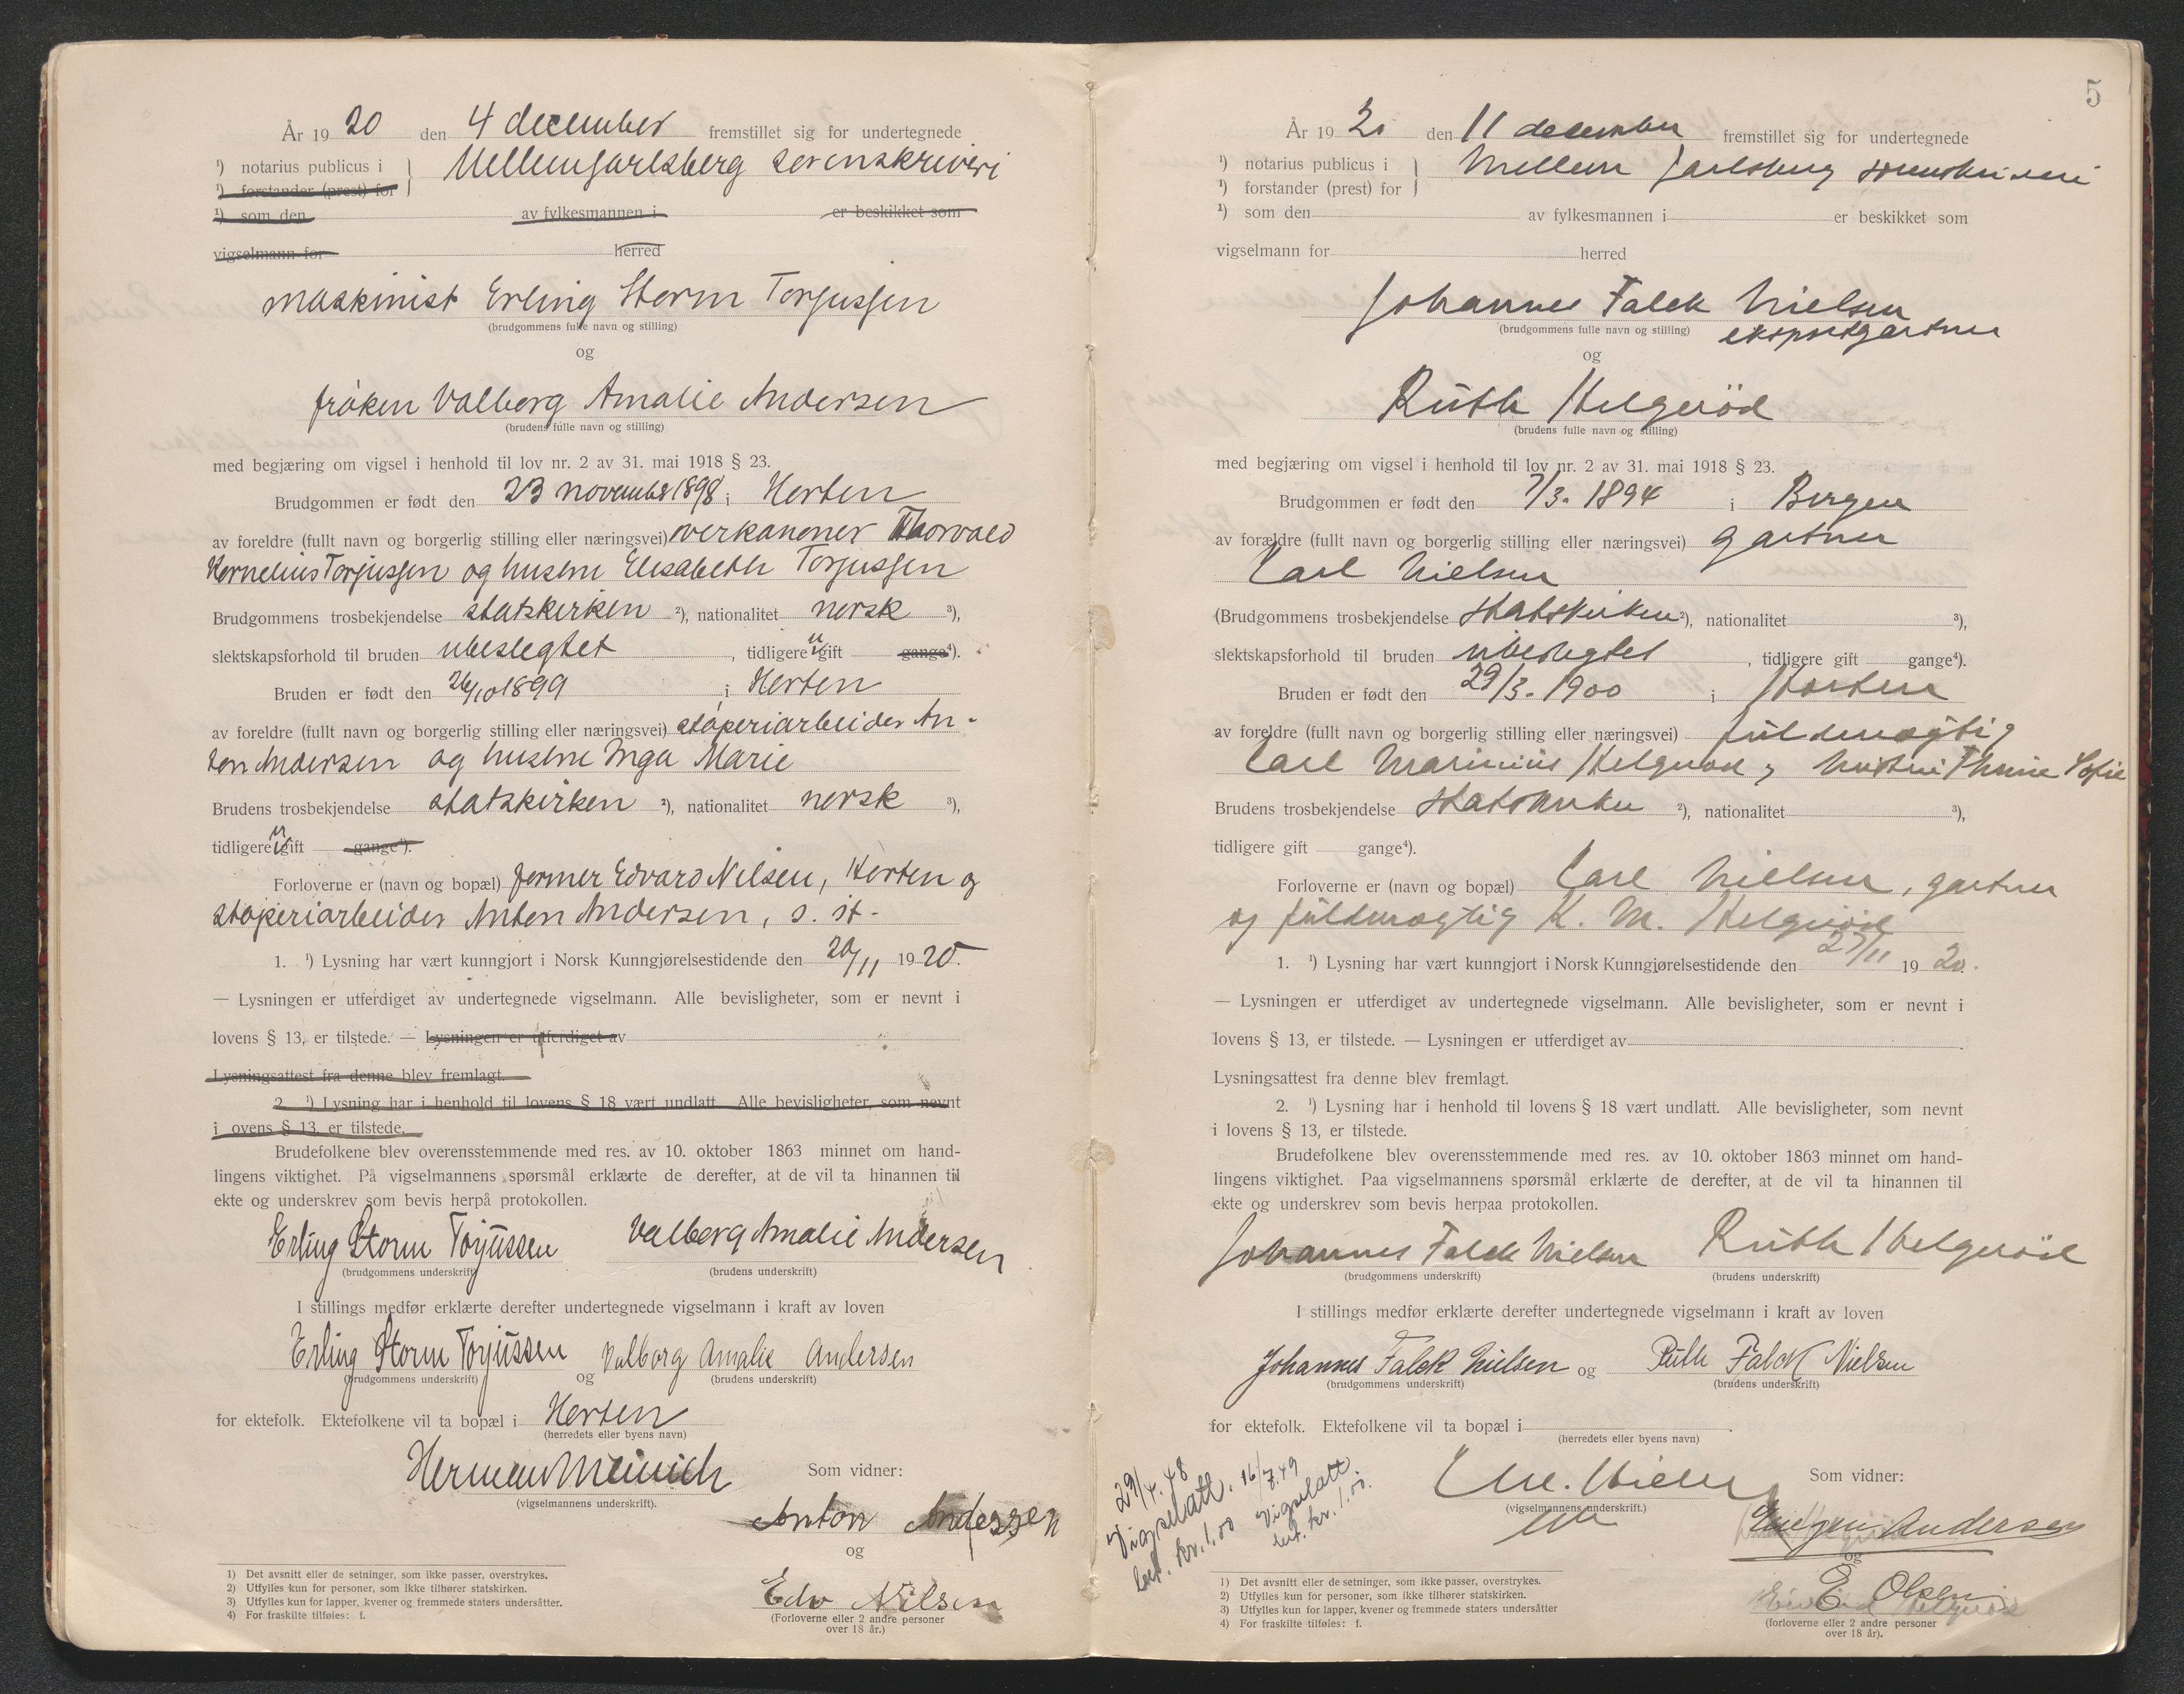 År 1920 den 4 december fremstillet sig for undertegnede
¹) notarius publicus i } Mellemjarlsberg sorenskriveri
¹) forstander (prest) for
¹) som den av fylkesmannen i er beskikket som
vigselmann for herred
maskinist Erling Storm Torjussen
(brudgommens fulle navn og stilling)
og
frøken Valborg Amalie Andersen
(brudens fulle navn og stilling)
med begjæring om vigsel i henhold til lov nr. 2 av 31. mai 1918 § 23.
Brudgommen er født den 23 november 1898 i Horten
av foreldre (fullt navn og borgerlig stilling eller næringsvei) overkanoner Thorvald
Kornelius Torjussen og hustru Elisabeth Torjussen
Brudgommens trosbekjendelse statskirken ²), nationalitet norsk ³),
slektskapsforhold til bruden ubeslegtet , tidligere ugift gange⁴).
Bruden er født den 26/10 1899 i Horten
av foreldre (fullt navn og borgerlig stilling eller næringsvei) støperiarbeider An-
ton Andersen og hustru Inga Marie
Brudens trosbekjendelse statskirken ²), nationalitet norsk ³),
tidligere ugift gange⁴).
Forloverne er (navn og bopæl) former Edvard Nilsen, Horten og
støperiarbeider Anton Andersen, s. st.
1. ¹) Lysning har vært kunngjort i Norsk Kunngjørelsestidende den 20/11 1920.
— Lysningen er utferdiget av undertegnede vigselmann. Alle bevisligheter, som er nevnt i
lovens § 13, er tilstede. — Lysningen er utferdiget av
Lysningsattest fra denne blev fremlagt.
2. ¹) Lysning har i henhold til lovens § 18 vært undlatt. Alle bevisligheter, som nevnt
i ovens § 13, er tilstede.
Brudefolkene blev overensstemmende med res. av 10. oktober 1863 minnet om hand-
lingens viktighet. På vigselmannens spørsmål erklærte de derefter, at de vil ta hinannen til
ekte og underskrev som bevis herpå protokollen.
Erling Storm Torjussen Valborg Amalie Andersen
(brudgommens underskrift) (brudens underskrift)
I stillings medfør erklærte derefter undertegnede vigselmann i kraft av loven
Erling Storm Torjussen og Valborg Amalie Andersen
(brudgommens underskrift) (brudens underskrift)
for ektefolk. Ektefolkene vil ta bopæl i Horten
(herredets eller byens navn)
Herman Meinich Som vidner:
(vigselmannens underskrift).
Anton Andersen
og
Edv Nilsen
(Forloverne eller 2 andre personer
over 18 år.)
1) Det avsnitt eller de setninger, som ikke passer, overstrykes.
2) Utfylles kun for personer, som ikke tilhører statskirken.
3) Utfylles kun for lapper, kvener og fremmede staters undersåtter.
4) For fraskilte tilføies: f.
5
År 1920 den 11 december fremstillet sig for undertegnede
¹) notarius publicus i } Mellem Jarlsberg sorenskriveri
¹) forstander (prest) for
¹) som den av fylkesmannen i er beskikket som
vigselmann for herred
Johannes Falck Nielsen
(brudgommens fulle navn og stilling) eksportgartner
og
Ruth Helgerød
(brudens fulle navn og stilling)
med begjæring om vigsel i henhold til lov nr. 2 av 31. mai 1918 § 23.
Brudgommen er født den 7/3. 1894 i Bergen
av forældre (fullt navn og borgerlig stilling eller næringsvei) gartner
Carl Nielsen
(Brudgommens trosbekjendelse Statskirken ²), nationalitet ³),
slektskapsforhold til bruden ubeslegtet , tidligere gift gange⁴).
Bruden er født den 29/3. 1900 i Horten
av foreldre (fullt navn og borgerlig stilling eller næringsvei) fuldmægtig
Carl Marinius Helgerød og hustru Sofie
Brudens trosbekjendelse Statskirken ²), nationalitet ³),
tidligere gift gange⁴).
Forloverne er (navn og bopæl) Carl Nielsen, gartner
og fuldmægtig K. M. Helgerød
1. ¹) Lysning har vært kunngjort i Norsk Kunngjørelsestidende den 27/11 1920.
— Lysningen er utferdiget av undertegnede vigselmann. Alle bevisligheter, som er nevnt i
lovens § 13, er tilstede. — Lysningen er utferdiget av
Lysningsattest fra denne blev fremlagt.
2. ¹) Lysning har i henhold til lovens § 18 vært undlatt. Alle bevisligheter, som nevnt
i lovens § 13, er tilstede.
Brudefolkene blev overensstemmende med res. av 10. oktober 1863 minnet om hand-
lingens viktighet. Paa vigselmannens spørsmål erklærte de derefter, at de vil ta hinannen til
ekte og underskrev som bevis herpaa protokollen.
Johannes Falck Nielsen Ruth Helgerød
(brudgommens underskrift) (brudens underskrift)
I stillings medfør erklærte derefter undertegnede vigselmann i kraft av loven
Johannes Falck Nielsen og Ruth Falck Nielsen
(brudgommens underskrift) (brudens underskrift)
for ektefolk. Ektefolkene vil ta bopæl i
(herredets eller byens navn)
Som vidner:
(vigselmannens underskrift.)
Andersen
og
E Olsen
(forloverne eller 2 andre personer
over 18 år).
29/4. 48
Vigselatt.
bet. kr. 1.00
16/7.49
Vigselatt.
bet. kr. 1.00.
1) Det avsnitt eller de setninger, som ikke passer, overstrykes.
2) Utfylles kun for personer, som ikke tilhører statskirken.
3) Utfylles kun for lapper, kvener og fremmede staters undersåtter
4) For fraskilte tilføies: f.